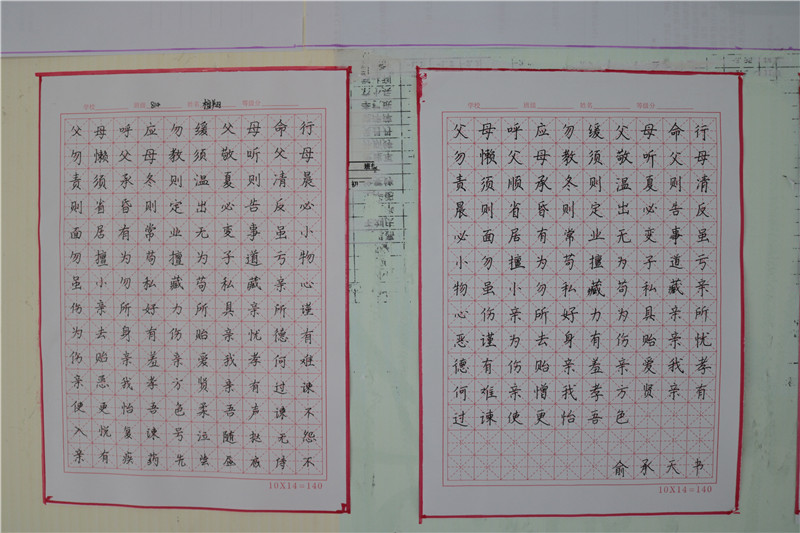 学校 班级 姓名 等级分
父母呼应勿缓父母命行
勿懒父母教须敬听父母
责须承冬则温夏则清晨
则省昏则定出必告反必
面居有常业无变事虽小
勿擅为苟擅为子道亏物
虽小勿私藏苟私藏亲心
伤亲所好力所具亲所谨
为去身有伤贻亲忧德有
伤贻亲羞亲爱我孝何难
亲恶我孝方贤亲有过谏
使更怡吾色柔吾声谏不
入悦复谏号泣随挞无怨
亲有疾药先尝昼夜侍不
10X14=140
学校 班级 姓名 等级分
父母呼应勿缓父母命行
勿懒父母教须敬听父母
责须顺承冬则温夏则清
晨则省昏则定出必告反
必面居有常业无变事虽
小勿擅为苟擅为子道亏
物虽小勿私藏苟私藏亲
心伤亲所好力为具亲所
恶谨为去身有伤贻亲忧
德有伤贻亲羞亲爱我孝
何难亲憎我孝方贤亲有
过谏使更怡吾色
俞承天书
10X14=140